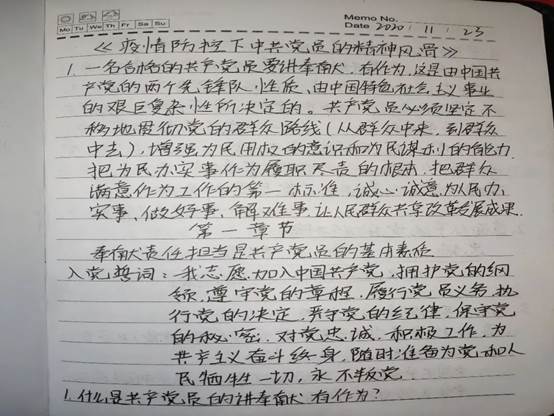 Mo Tu We Th Fr Sa Su
Memo No.
Date 2020 / 11 / 23
《疫情防控下中共党员的精神风骨》
1. 一名合格的共产党员要讲奉献,有作为,这是由中国共
产党的两个先锋队性质,由中国特色社会主义事业
的艰巨复杂性所决定的。共产党员必须坚定不
移地贯彻党的群众路线(从群众中来,到群众
中去),增强为民用权的意识和为民谋利的能力,
把为民办实事作为履职尽责的根本,把群众
满意作为工作的第一标准,诚心诚意为人民办
实事、做好事、解难事,让人民群众共享改革发展成果.
第一章节
奉献责任担当是共产党员的基本素质
入党誓词:我志愿加入中国共产党,拥护党的纲
领,遵守党的章程,履行党员义务,执
行党的决定,严守党的纪律,保守党
的秘密,对党忠诚,积极工作,为
共产主义奋斗终身,随时准备为党和人
民牺牲一切,永不叛党
1. 什么是共产党员的讲奉献有作为?